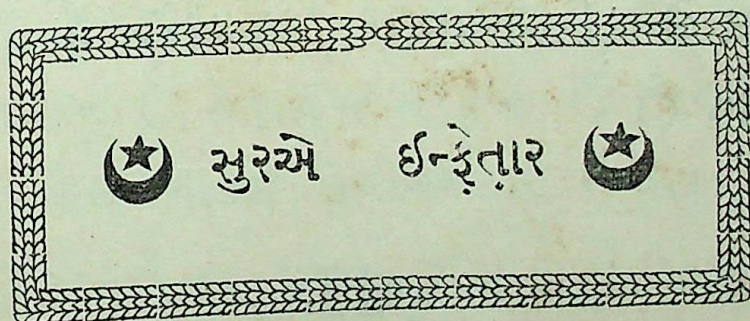 સુરએ ઈન્ફે઼ત઼ાર